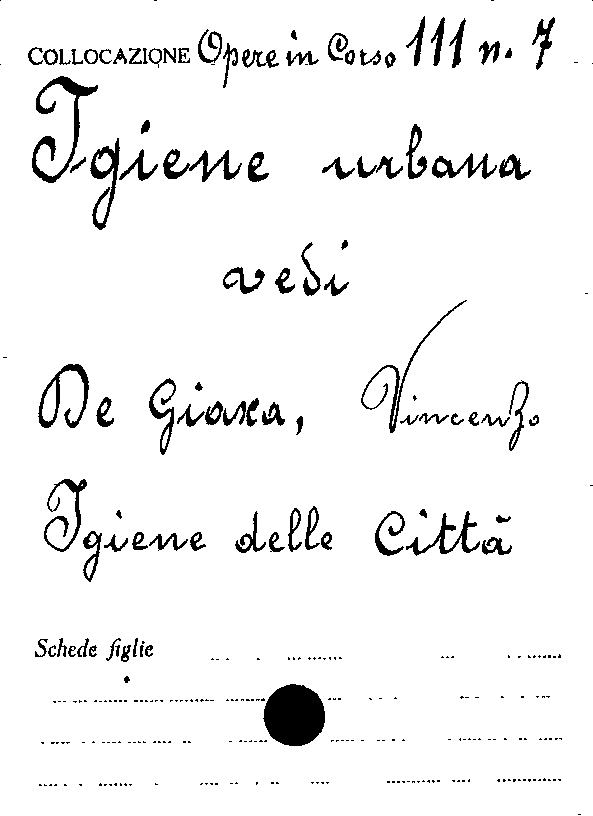 COLLOCAZIONE Opere in Corso 111 n. 7
Igiene urbana
vedi
De Giaxa, Vincenzo
Igiene delle Città
Schede figlie